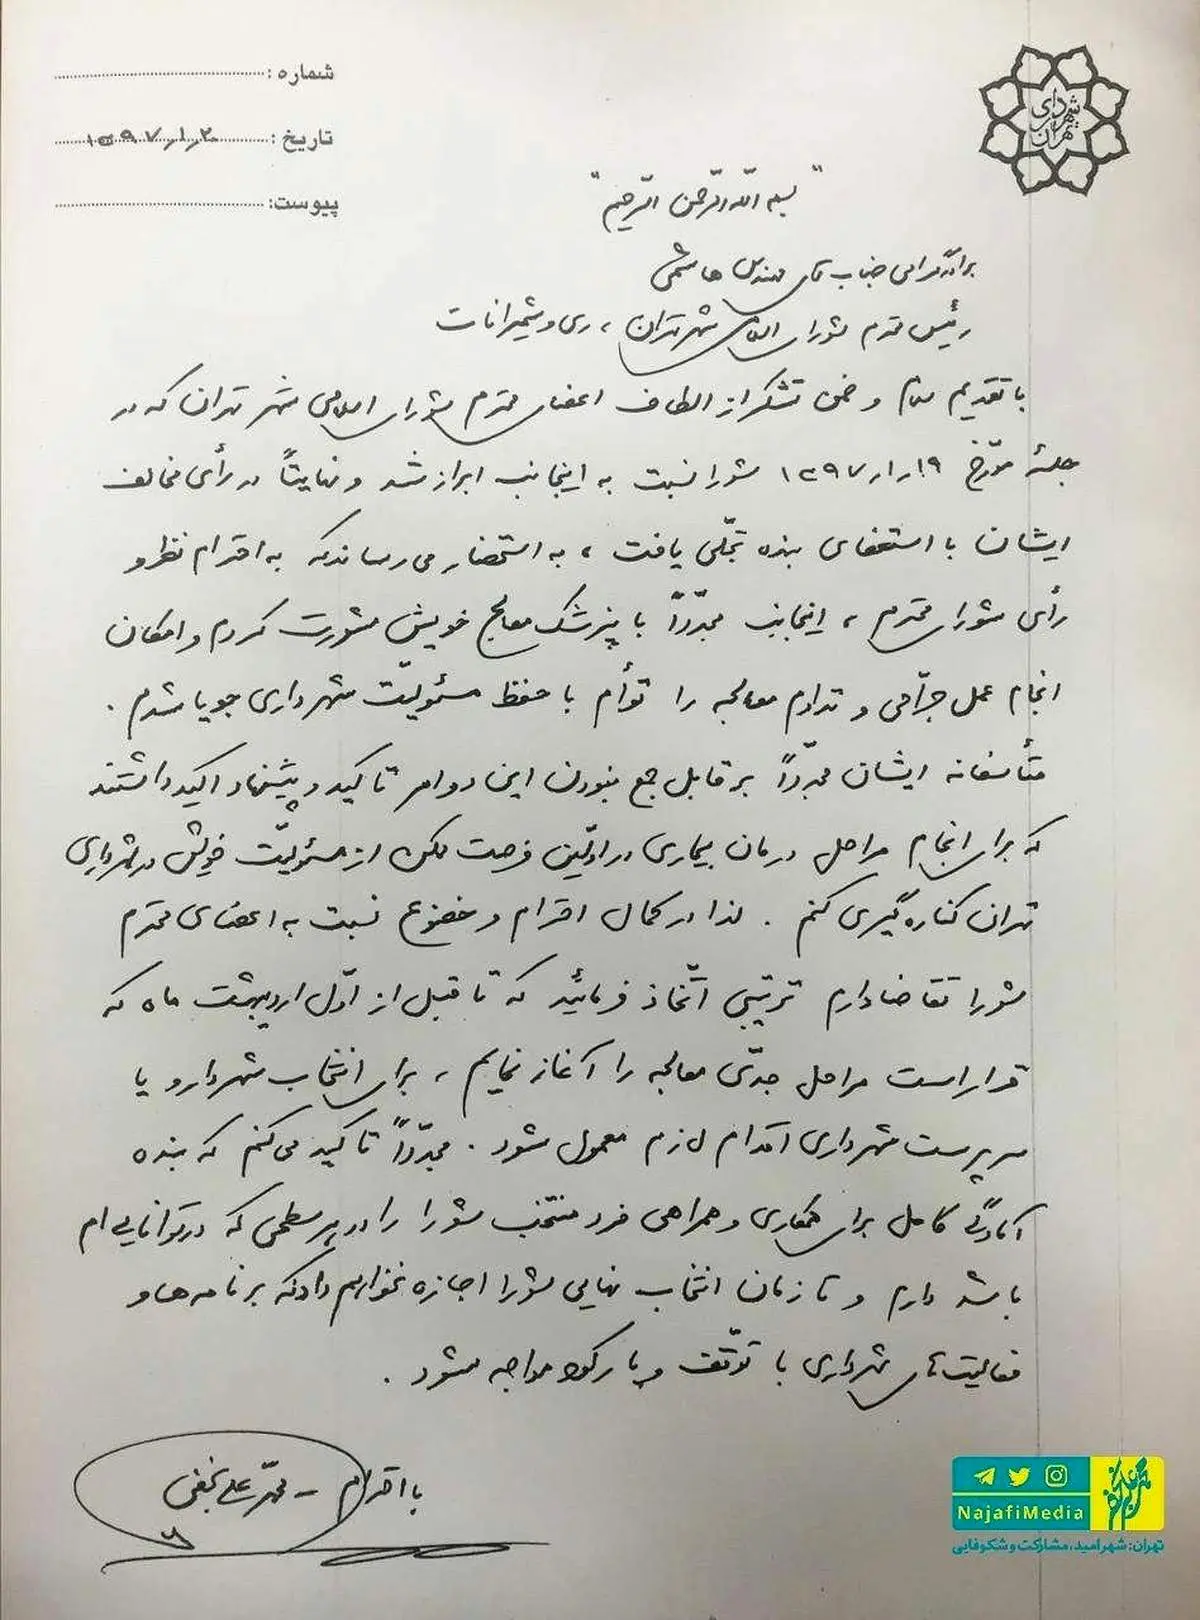 شماره :
تاریخ : ۱۳۹۷/۱/۲۰
پیوست:
شهرداری تهران
"بسم الله الرحمن الرحیم"
برادر گرامی جناب آقای مهندس هاشمی
رئیس محترم شورای اسلامی شهر تهران ، ری و شمیرانات
با تقدیم سلام و ضمن تشکر از الطاف اعضای محترم شورای اسلامی شهر تهران که در
جلسۀ مورّخ ۱۳۹۷/۱/۱۹ شورا نسبت به اینجانب ابراز شد و نهایتاً در رأی مخالف
ایشان با استعفای بنده تجلّی یافت ، به استحضار می رساند که به احترام نظر و
رأی شورای محترم ، اینجانب مجدّداً با پزشک معالج خویش مشورت کردم و امکان
انجام عمل جرّاحی و تداوم معالجه را توأم با حفظ مسئولیّت شهرداری جویا شدم .
متأسفانه ایشان مجدّداً بر قابل جمع نبودن این دو امر تاکید و پیشنهاد اکید داشتند
که برای انجام مراحل درمان بیماری در اوّلین فرصت ممکن از مسئولیّت خویش در شهرداری
تهران کناره گیری کنم . لذا در کمال احترام و خضوع نسبت به اعضای محترم
شورا تقاضا دارم ترتیبی اتّخاذ فرمائید که تا قبل از اوّل اردیبهشت ماه که
قرار است مراحل جدّی معالجه را آغاز نمایم ، برای انتخاب شهردار و یا
سرپرست شهرداری اقدام لازم معمول شود . مجدّداً تاکید می کنم که بنده
آمادگی کامل برای همکاری و همراهی فرد منتخب شورا را در هر سطحی که در توانایی ام
باشد دارم و تا زمان انتخاب نهایی شورا اجازه نخواهم داد که برنامه ها و
فعالیت های شهرداری با توقّف و یا رکود مواجه شود .
با احترام - محمّد علی نجفی
NajafiMedia
محمدعلی نجفی
تهران: شهر امید، مشارکت و شکوفایی